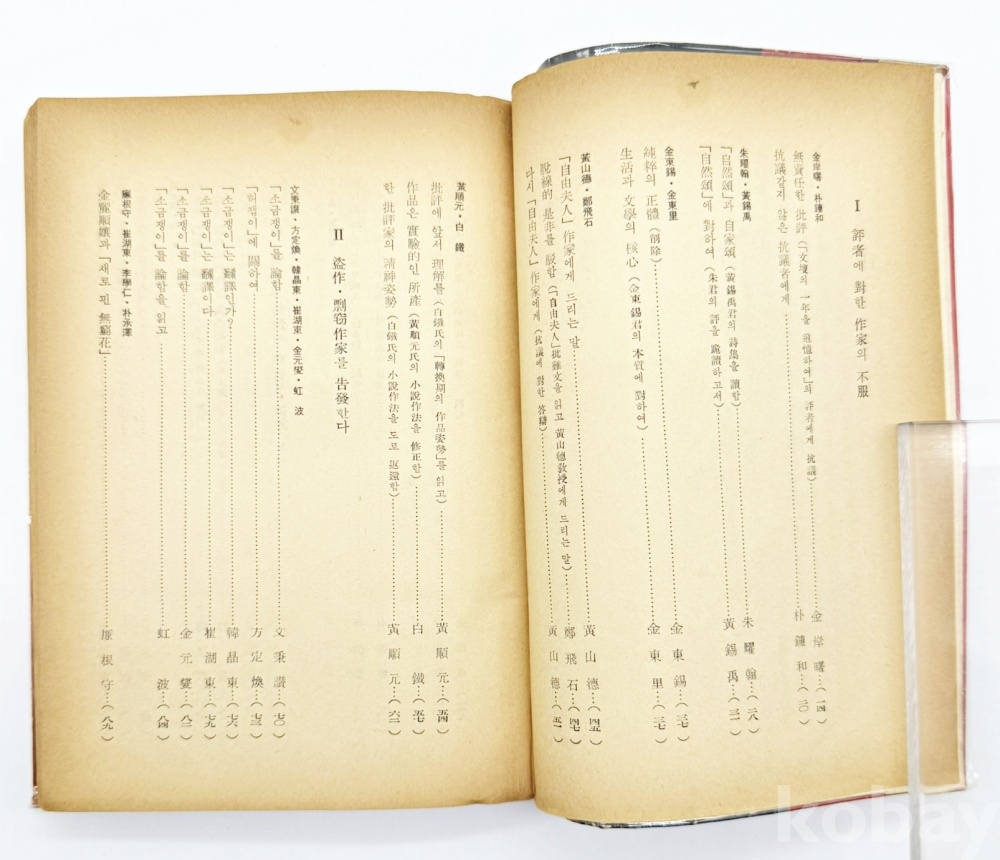 I 評者에 對한 作家의 不服
金岸曙・朴鍾和
無責任한 批評(「文壇의 一年을 追憶하여」의 評者에게 抗議)……金岸曙…(一四)
抗議같지 않은 抗議者에게……朴鍾和…(二〇)
朱耀翰・黃錫禹
「自然頌」과 自家頌(黃錫禹君의 詩集을 讀함)……朱耀翰…(二八)
「自然頌」에 對하여(朱君의 評을 跪讀하고서)……黃錫禹…(三一)
金東錫・金東里
純粹의 正體(削除)……金東錫…(三七)
生活과 文學의 核心(金東錫君의 本質에 對하여)……金東里…(三七)
黃山德・鄭飛石
「自由夫人」作家에게 드리는 말……黃山德…(四五)
脫線的 是非를 駁함(「自由夫人」批難文을 읽고 黃山德敎授에게 드리는 말)…鄭飛石…(四七)
다시 「自由夫人」作家에게(抗議에 對한 答辯)……黃山德…(五一)
黃順元・白鐵
批評에 앞서 理解를(白鐵氏의 「轉換期의 作品姿勢」를 읽고)……黃順元…(五四)
作品은 實驗的인 所產(黃順元氏의 小說作法을 修正함)……白鐵…(五七)
한 批評家의 精神姿勢(白鐵氏의 小說作法을 도로 返還함)……黃順元…(六二)
II 盜作・剽窃作家를 告發한다
文秉讚・方定煥・韓晶東・崔湖東・金元燮・虹波
「소금쟁이」를 論함……文秉讚…(七〇)
「허잽이」에 關하여……方定煥…(七三)
「소금쟁이」는 飜譯인가?……韓晶東…(七六)
「소금쟁이」는 飜譯이다……崔湖東…(七九)
「소금쟁이」를 論함……金元燮…(八二)
「소금쟁이」를 論함을 읽고……虹波…(八四)
廉根守・崔湖東・李學仁・朴承澤
金麗順孃과 「새로 핀 無窮花」……廉根守…(八九)
kobay